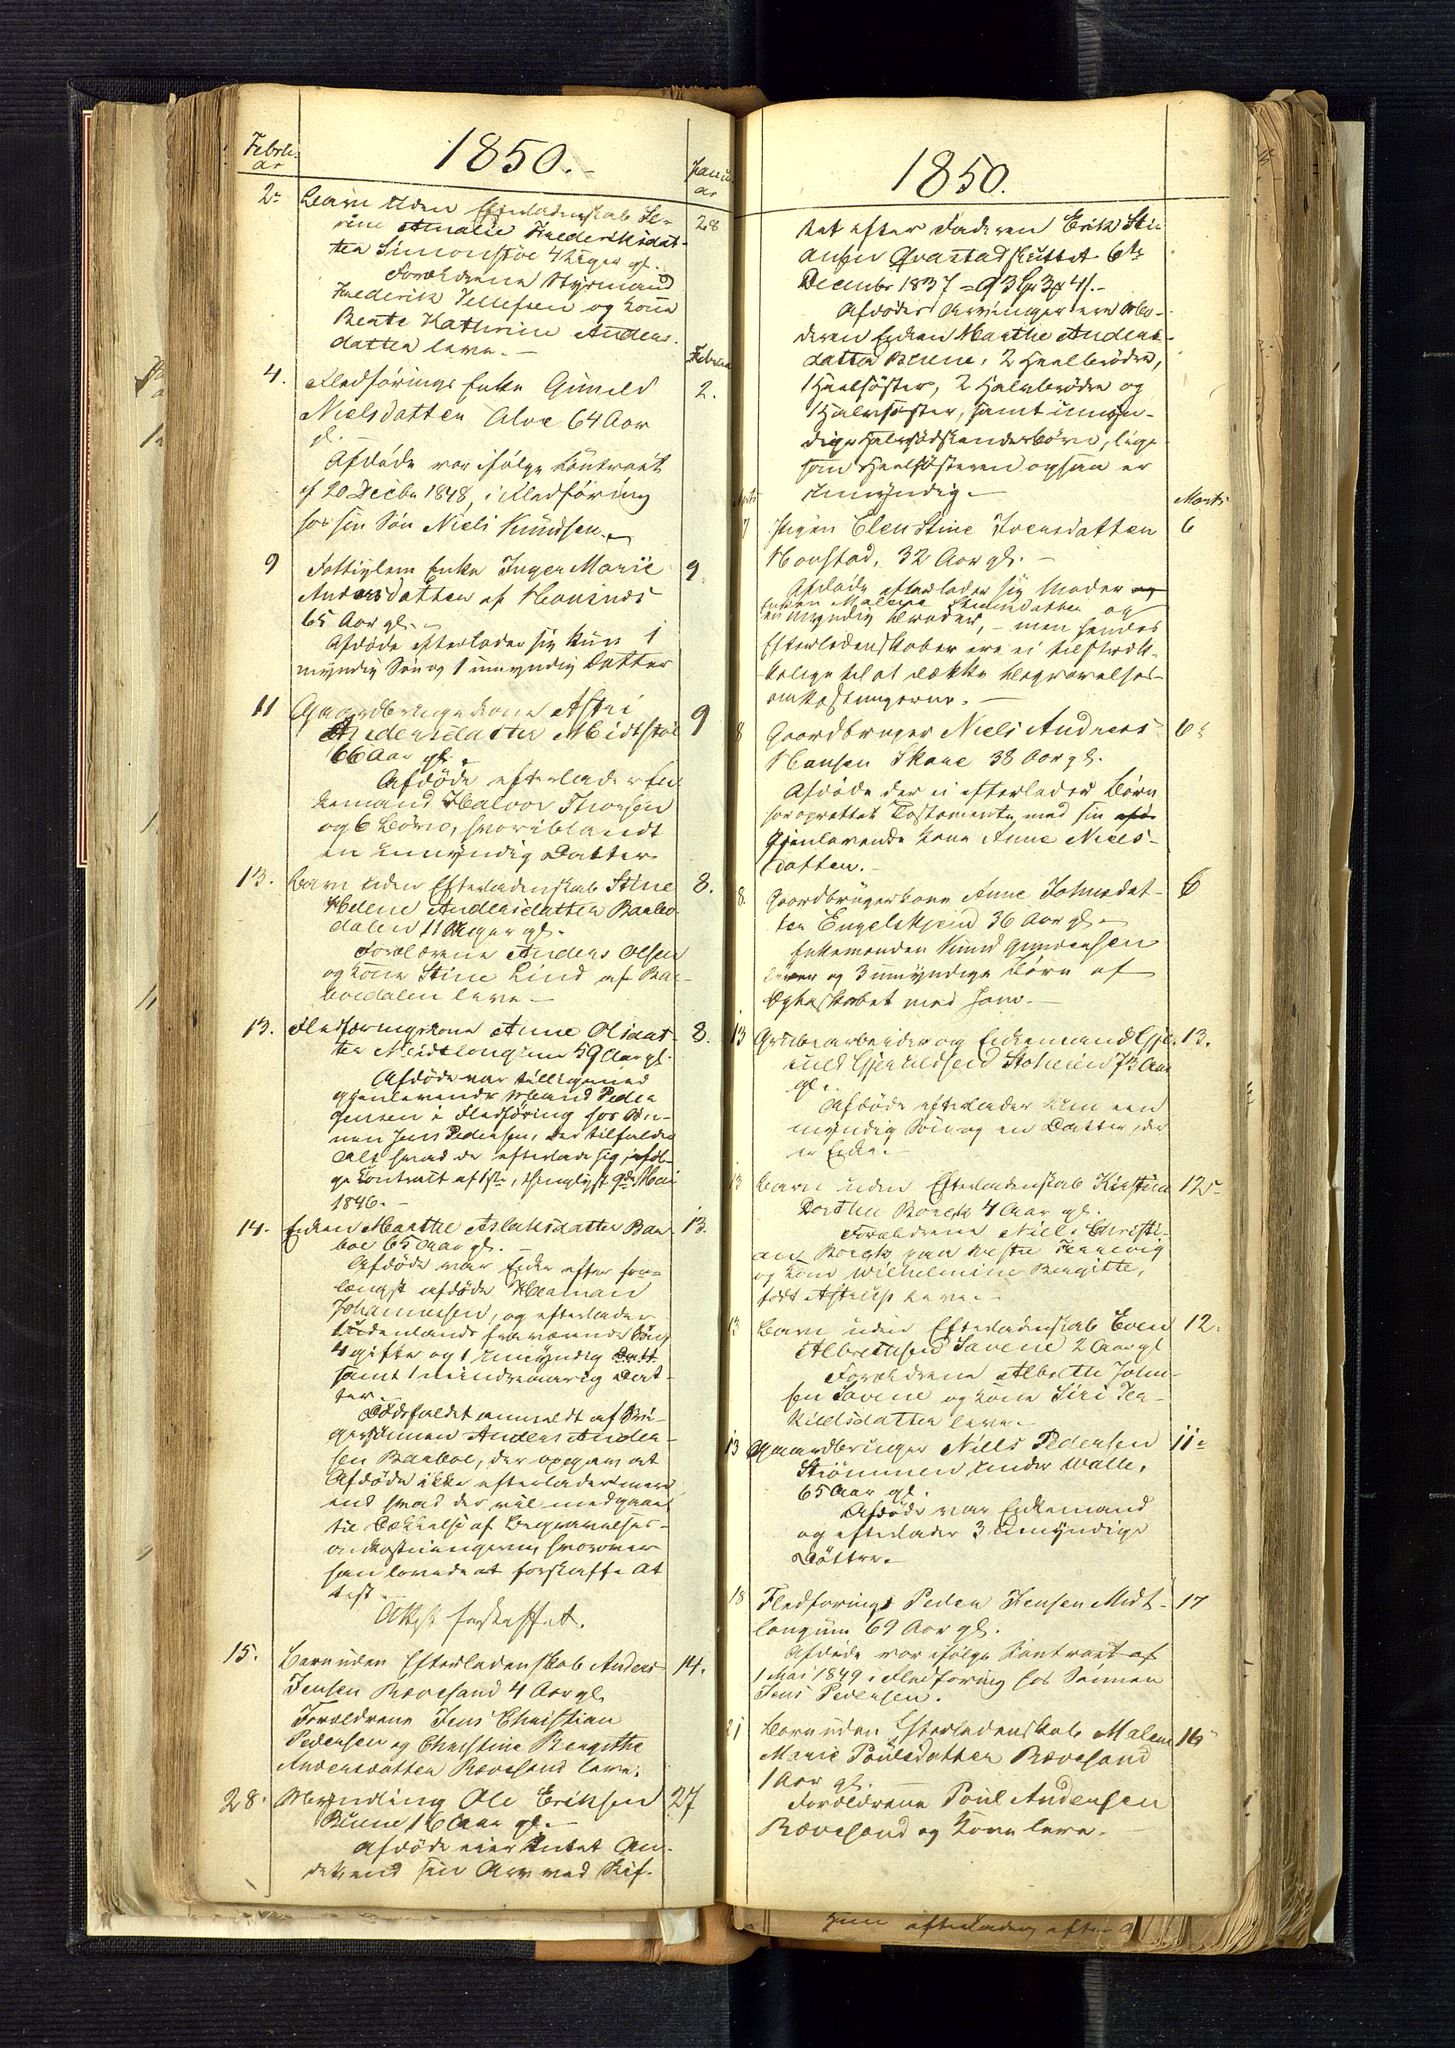 Febru-
ar
1850.
Janu-
ar
2 Barn uden Efterladenskab Se- 28
rine Amalie Frederiksdat-
ter Simonstøe 4 Uger gl.
Forældrene Styrmand
Frederik Tellefsen og Kone
Bente Kathrine Anders-
datter leve.
Februar
4. Fledførings Enke Gunild 2.
Nielsdatter Alve 64 Aar
gl.
Afdøde var ifølge Contract
af 20 Decbr 1848 i Fledføring
hos sin Søn Niels Knudsen.
9 Fattiglem Enke Inger Marie 9.
Andersdatter af
65 Aar gl.
Afdøde efterlader sig kun 1
myndig Søn og 1 umyndig Datter
11 Gaardbrugerkone Astri 9
Andersdatter Midtstøl
66 Aar gl.
Afdøde efterlader En-
kemand Halvor Thorsen
og 6 Børn, hvoriblandt
en umyndig Datter.
13. Barn uden Efterladenskab Stine 8.
Helene Andersdatter Barbo-
dalen 11 Uger gl.
Forældrene Anders Olsen
og Kone Stine Lind af Bar-
boedalen leve
13. Fledføringskone Anne Olsdat- 8.
ter Midtlongum 59 Aar gl.
Afdøde var tilligemed
gjenlevende Mand Peder
Jensen i Fledføring hos Søn-
nen Jens Pedersen, der tilfalder
Alt hvad de efterlade sig, iføl-
ge Contract af 1ste, thinglyst 9de Mai
1846.
14. Enken Marthe Aslaksdatter Bar- 13.
boe 65 Aar gl.
Afdøde var Enke efter for-
længst afdøde Herman
Johannesen, og efterlader
udenlands fraværende Søn
4 gifte og 1 umyndig Datt
samt 1 mindreaarig Dat-
ter.
Dødsfaldet anmeldt af Svi-
gersønnen Anders Ander-
sen Barboe, der opgav at
Afdøde ikke efterlader mere
end hvad der vil medgaae
til Dækkelse af Begravelses-
omkostningerne, hvorom
han lovede at forskaffe At
test.
Attest forskaffet.
15. Barn uden Efterladenskab Anders 14.
Jensen Rævesand 4 Aar gl.
Forældrene Jens Christian
Pedersen og Christine Bergithe
Andersdatter Rævesand leve.
28. Myndling Ole Eriksen 27
Biune 16 Aar gl.
Afdøde eier Intet An-
det end sin Arv ved Skif-
1850.
tet efter Faderen Erik Sti-
ansen Qvastad sluttet 6te
December 1837 = 93 Spd 3 # 4 s.
Afdødes Arvinger ere Mo-
deren Enken Marthe Anders-
datter Biune, 2 Heelbrødre,
1 Heelsøster, 2 Halvbrødre og
1 Halvsøster, samt umyn-
dige Halvsødskendebørn, lige-
som Heelsøsteren ogsaa er
umyndig.
Marts Marts
7 Pigen Elen Stine Ivensdatter 6
Havstad, 32 Aar gl.
Afdøde efterlader sig Moder og
Enken Malene datter og
en myndig Broder, men hendes
Efterladenskaber ere ei tilstræk-
kelige til at dække Begravelses-
omkostningerne.
8 Gaardbruger Niels Andreas 6
Hansen Skare 38 Aar gl.
Afdøde der ei efterlader Børn
har oprettet Testamente med sin
gjenlevende Kone Anne Niels-
datter.
8. Gaardbrugerkone Anne Johnsdat- 6
ter Engelskjøn 36 Aar gl.
Enkemanden Knud Gundersen
lever og 3 umyndige Børn af
Ægteskabet med ham.
13 Grubearbeider og Enkemand Gje- 13.
ruld Gjeruldsen Stoheien 73 Aar
gl.
Afdøde efterlader kun een
myndig Søn og en Datter, der
er Enke.
13 Barn uden Efterladenskab Kirstine 12
Dorthe Borch 4 Aar gl.
Forældrene Niels Christi-
an Borch paa Vestre Tromøe
og Kone Wilhelmine Bergitte,
født Astrup leve.
13 Barn uden Efterladenskab Even 12.
Albretsen Savene 2 Aar gl
Forældrene Albrethe John-
sen Savene og Kone Siri Ter-
kildsdatter leve.
13 Gaardbruger Niels Pedersen 11
Strømmen under Walle,
65 Aar gl.
Afdøde var Enkemand
og efterlader 3 umyndige
Døttre.
18 Fledførings Peder Jensen Midt- 17
longum 69 Aar gl.
Afdøde var ifølge Contract af
1 Mai 1849 i Fledføring hos Sønnen
Jens Pedersen.
21 Barn uden Efterladenskab Malene 16
Marie Poulsdatter Rævesand
1 Aar gl.
Forældrene Poul Andersen
Rævesand og Kone leve.
Hun efterlader efter